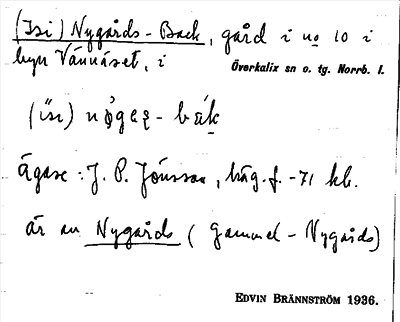 (Isi) Nygårds-Back, gård i no 10 i
byn Vännäset, i
Överkalix sn o. tg. Norrb. l.
(isi) nǿgaʒ - bák
Ägare: J. P. Jönsson, häg. f. -71 kb.
är an Nygårds (Gammel-Nygårds)
EDVIN BRÄNNSTRÖM 1936.